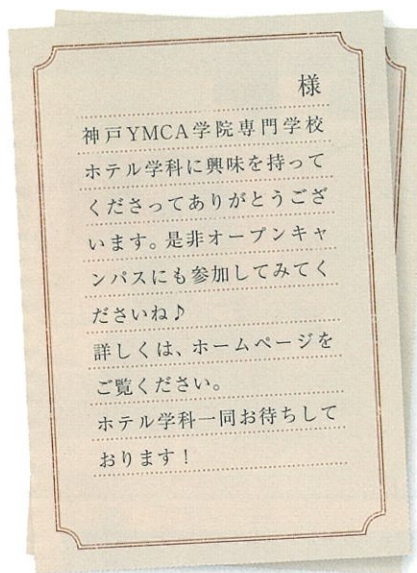 様
神戸YMCA学院専門学校
ホテル学科に興味を持って
くださってありがとうござ
います。是非オープンキャ
ンパスにも参加してみてく
ださいね♪
詳しくは、ホームページを
ご覧ください。
ホテル学科一同お待ちして
おります！